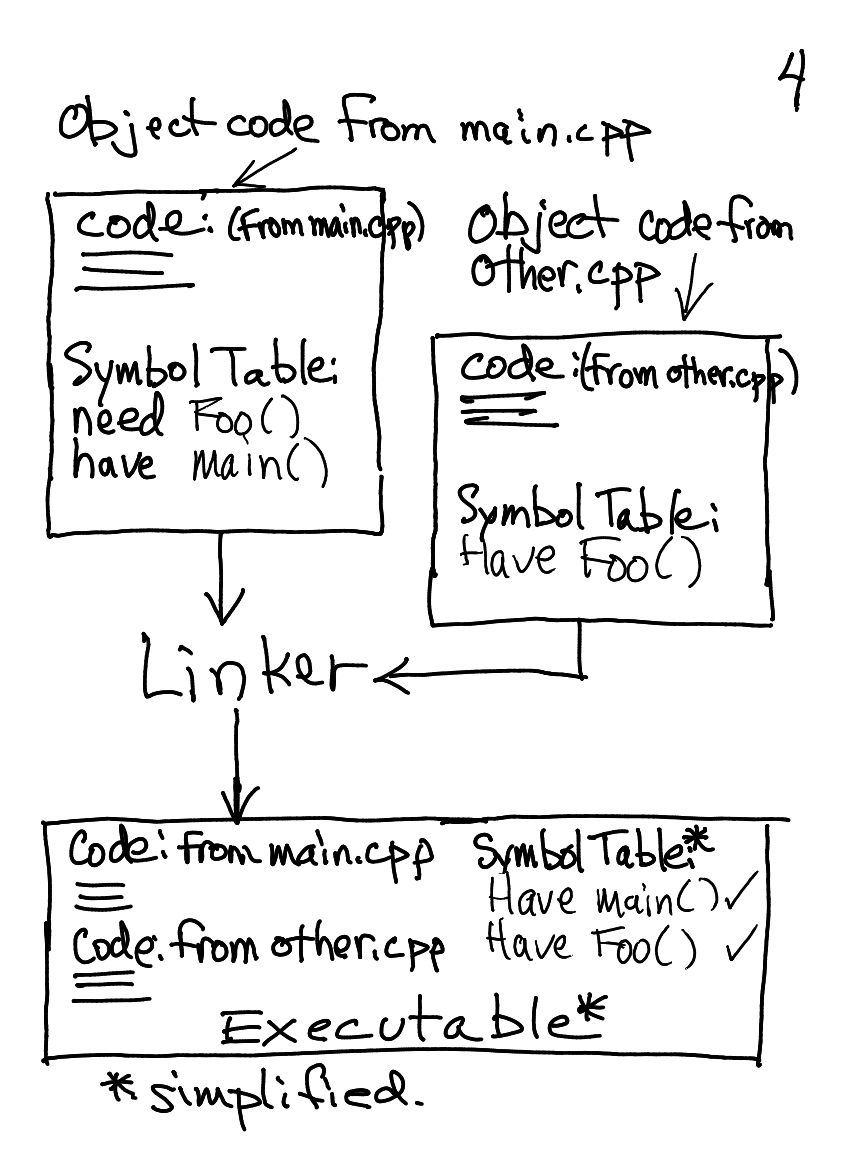 4
Object code from main.cpp
code: (from main.cpp)
Symbol Table:
need Foo()
have main()
Object code from
other.cpp
code: (from other.cpp)
Symbol Table:
Have Foo()
Linker
Code: from main.cpp
Code: from other.cpp
Symbol Table:*
Have main() ✓
Have Foo() ✓
Executable*
* simplified.